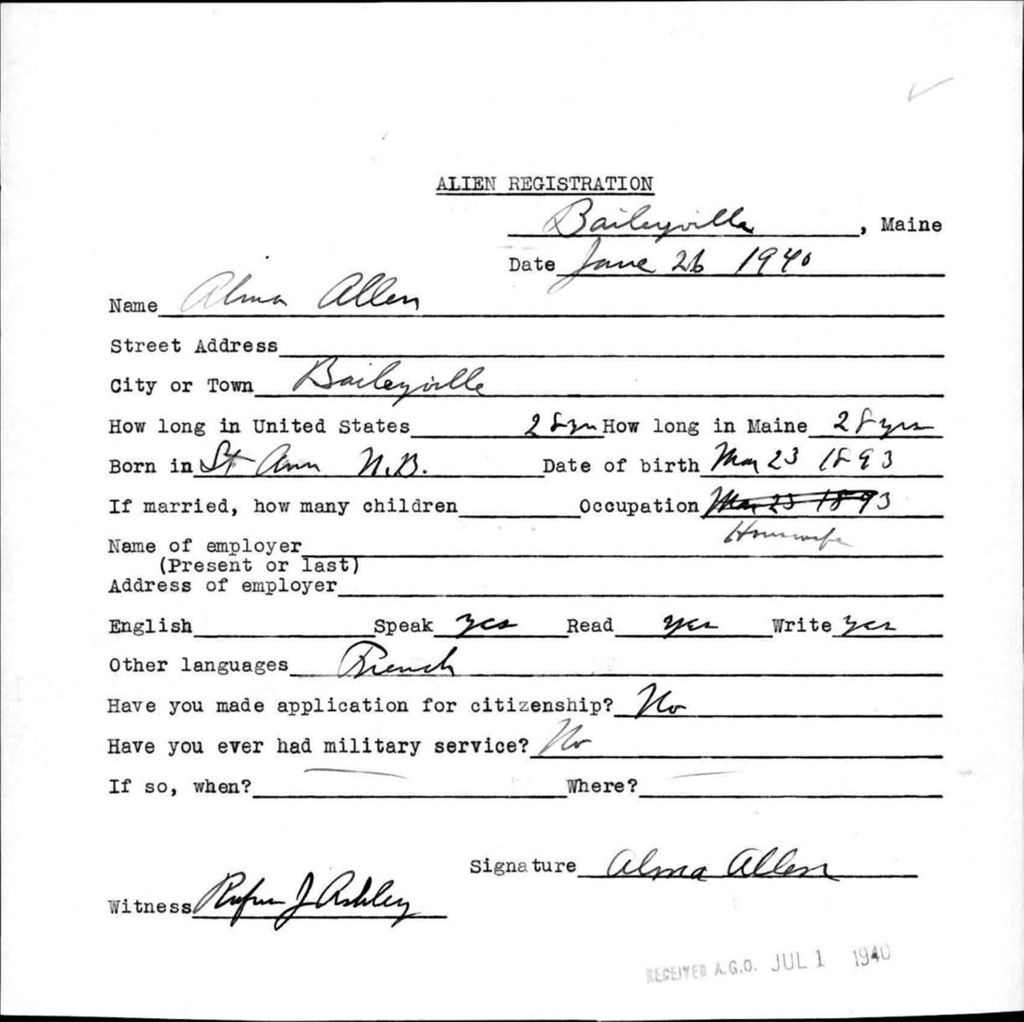 ALIEN REGISTRATION
Baileyville, Maine
Date June 26 1940
Name Alma Allen
Street Address
City or Town Baileyville
How long in United States 28 yrs How long in Maine 28 yrs
Born in St Ann N.B. Date of birth Mar 23 1893
If married, how many children Occupation Mar 23 1893
Housewife
Name of employer
(Present or last)
Address of employer
English Speak yes Read yes Write yes
Other languages French
Have you made application for citizenship? No
Have you ever had military service? No
If so, when? Where?
Signature Alma Allen
Witness Rufus J Ashley
RECEIVED A.G.O. JUL 1 1940